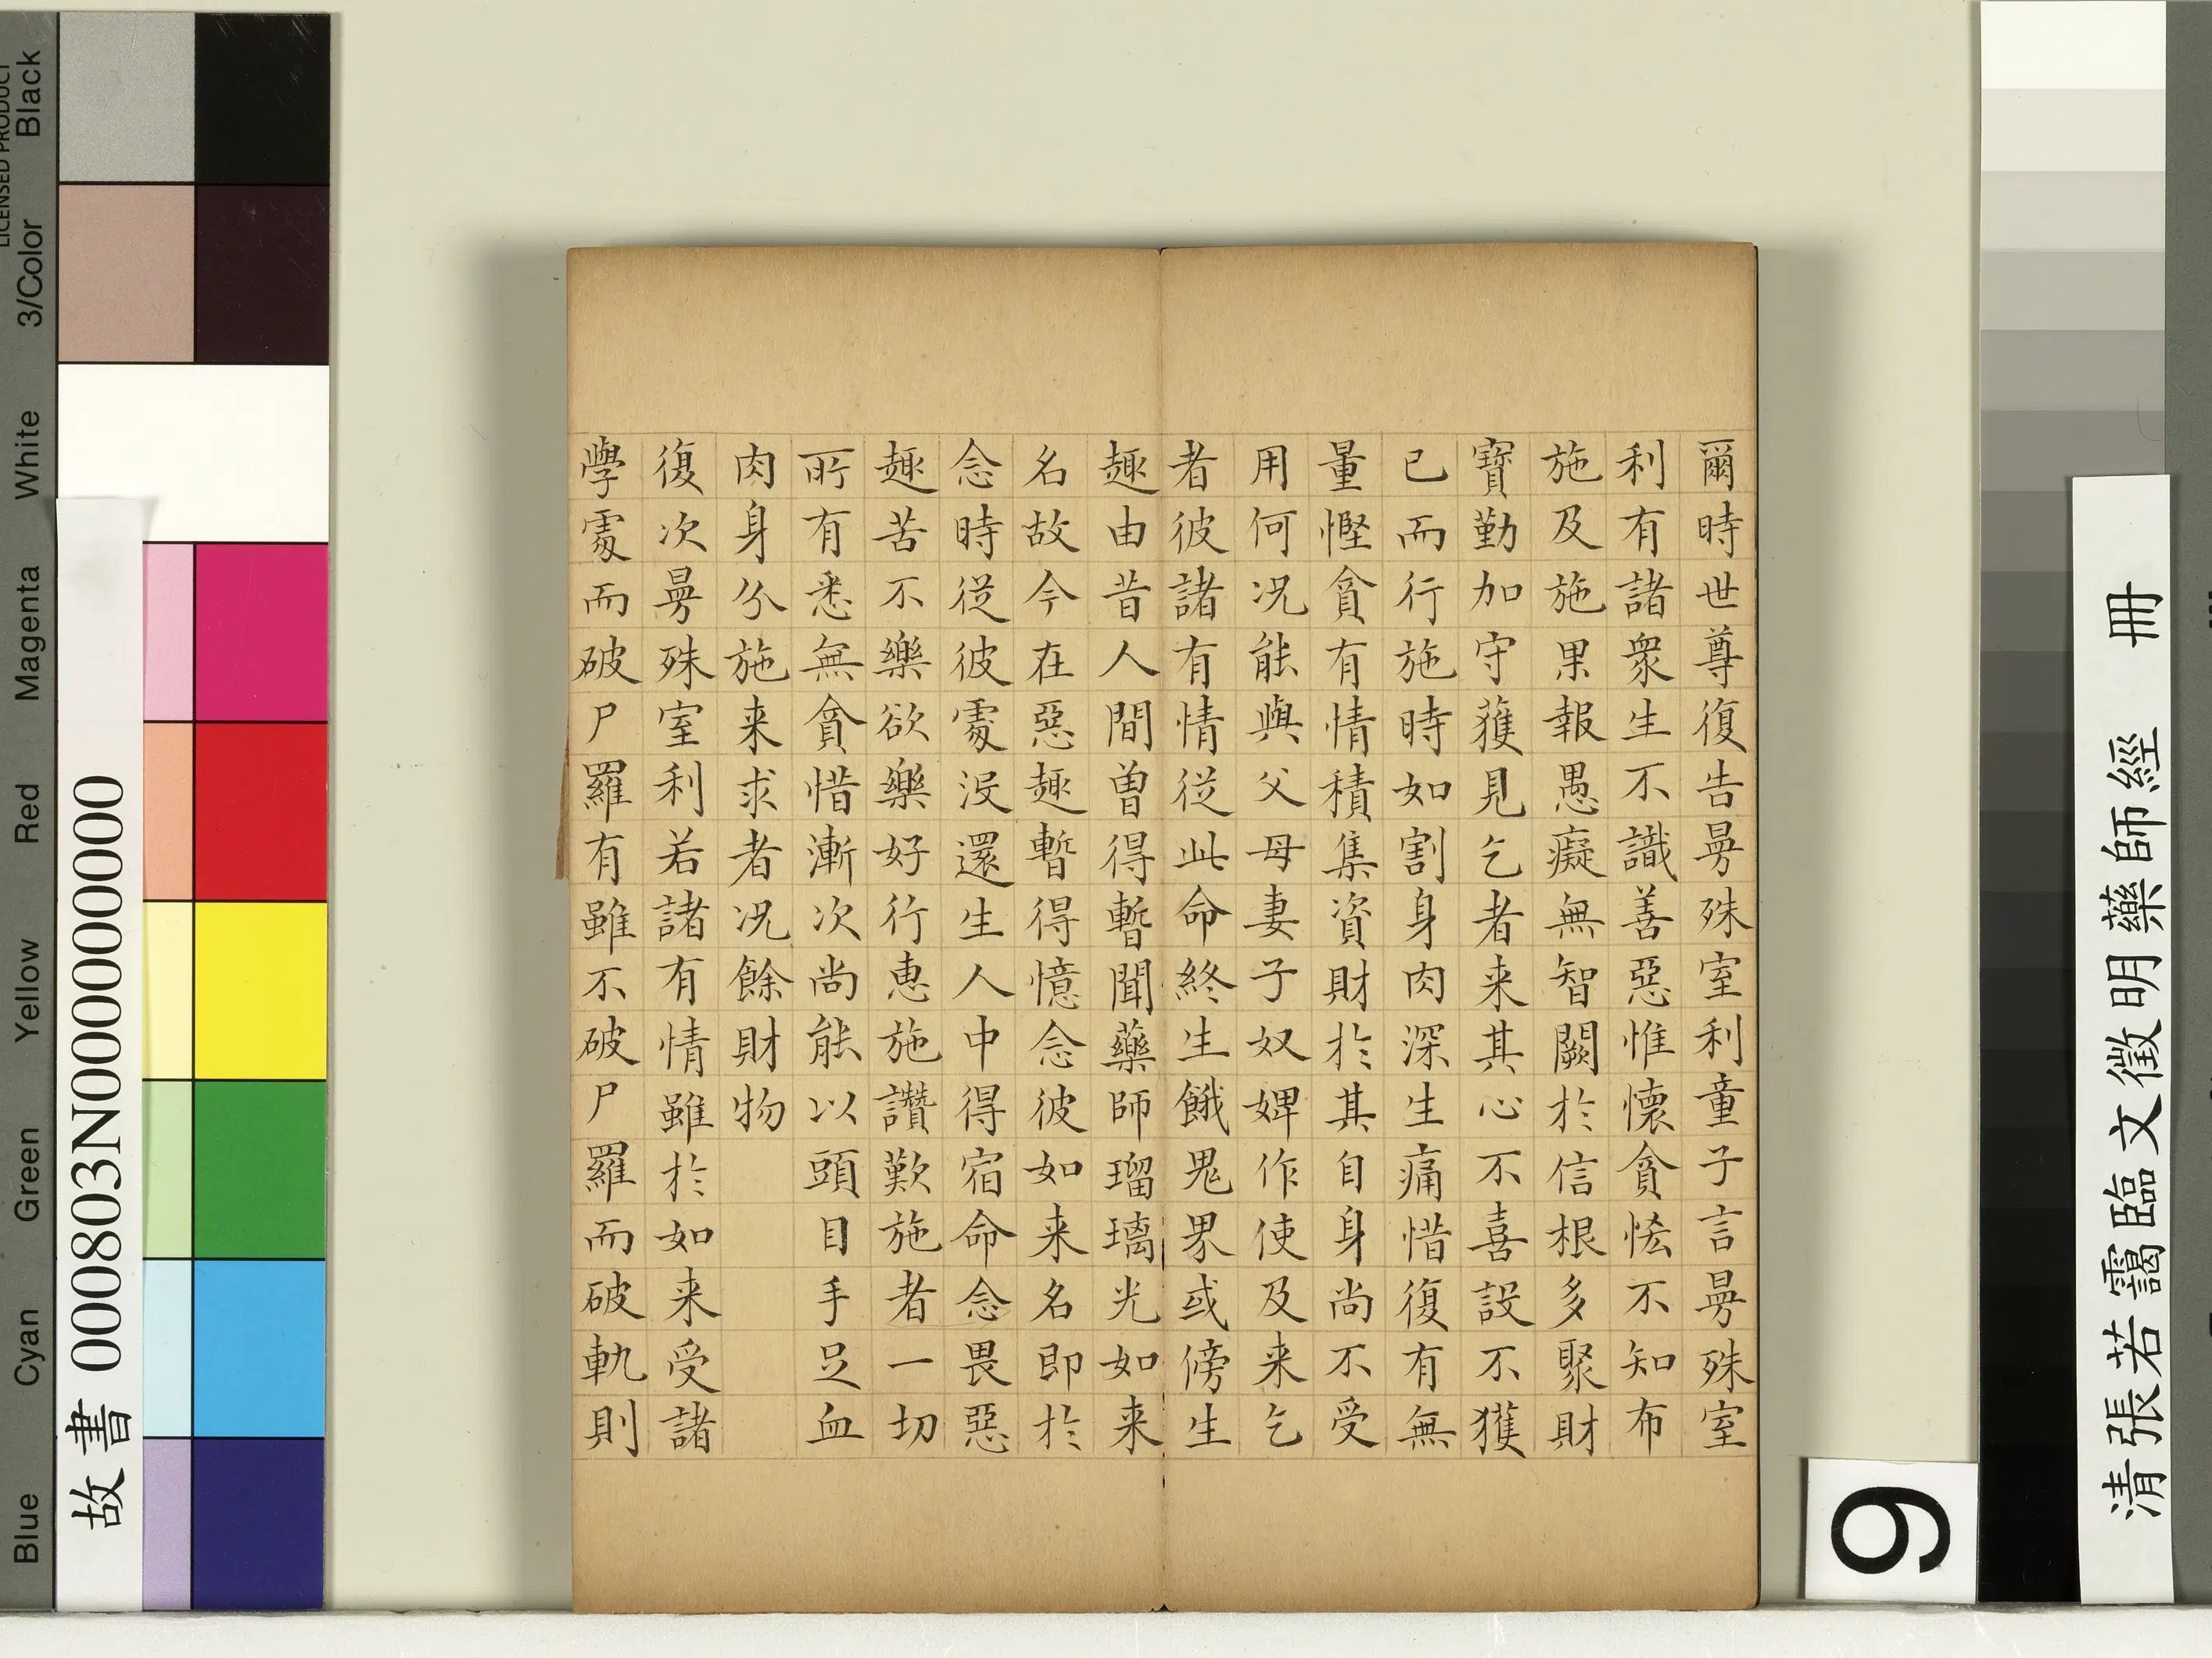 爾時世尊復告曼殊室利童子言曼殊室
利有諸衆生不識善惡惟懷貪恡不知布
施及施果報愚癡無智闕於信根多聚財
寶勤加守獲見乞者来其心不喜設不獲
已而行施時如割身肉深生痛惜復有無
量慳貪有情積集資財於其自身尚不受
用何况能與父母妻子奴婢作使及来乞
者彼諸有情從此命終生餓鬼界或傍生
趣由昔人間曽得暫聞藥師瑠璃光如来
名故今在惡趣暫得憶念彼如来名即於
念時從彼處沒還生人中得宿命念畏惡
趣苦不樂欲樂好行惠施讚歎施者一切
所有悉無貪惜漸次尚能以頭目手足血
肉身分施来求者况餘財物
復次曼殊室利若諸有情雖於如来受諸
學處而破尸羅有雖不破尸羅而破軌則
清張若靄臨文徵明藥師經 冊
9
故書 000803N000000000
Blue Cyan Green Yellow Red Magenta White 3/Color Black
LICENSED PRODUCT